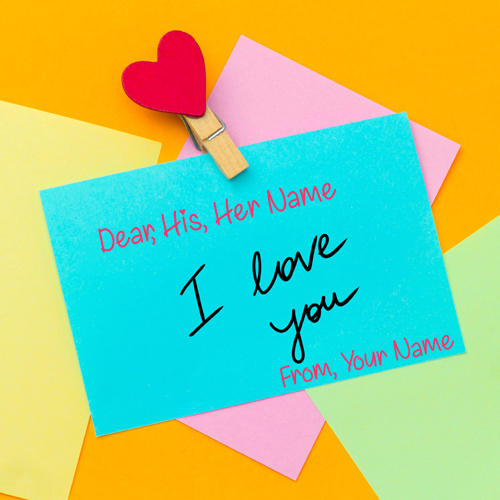 Dear, His, Her Name
I love
you
From, Your Name